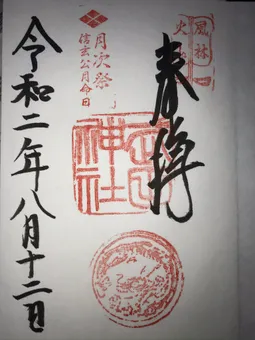 風林
火
奉拝
月次祭
信玄公月命日
神社
令和二年八月十二日